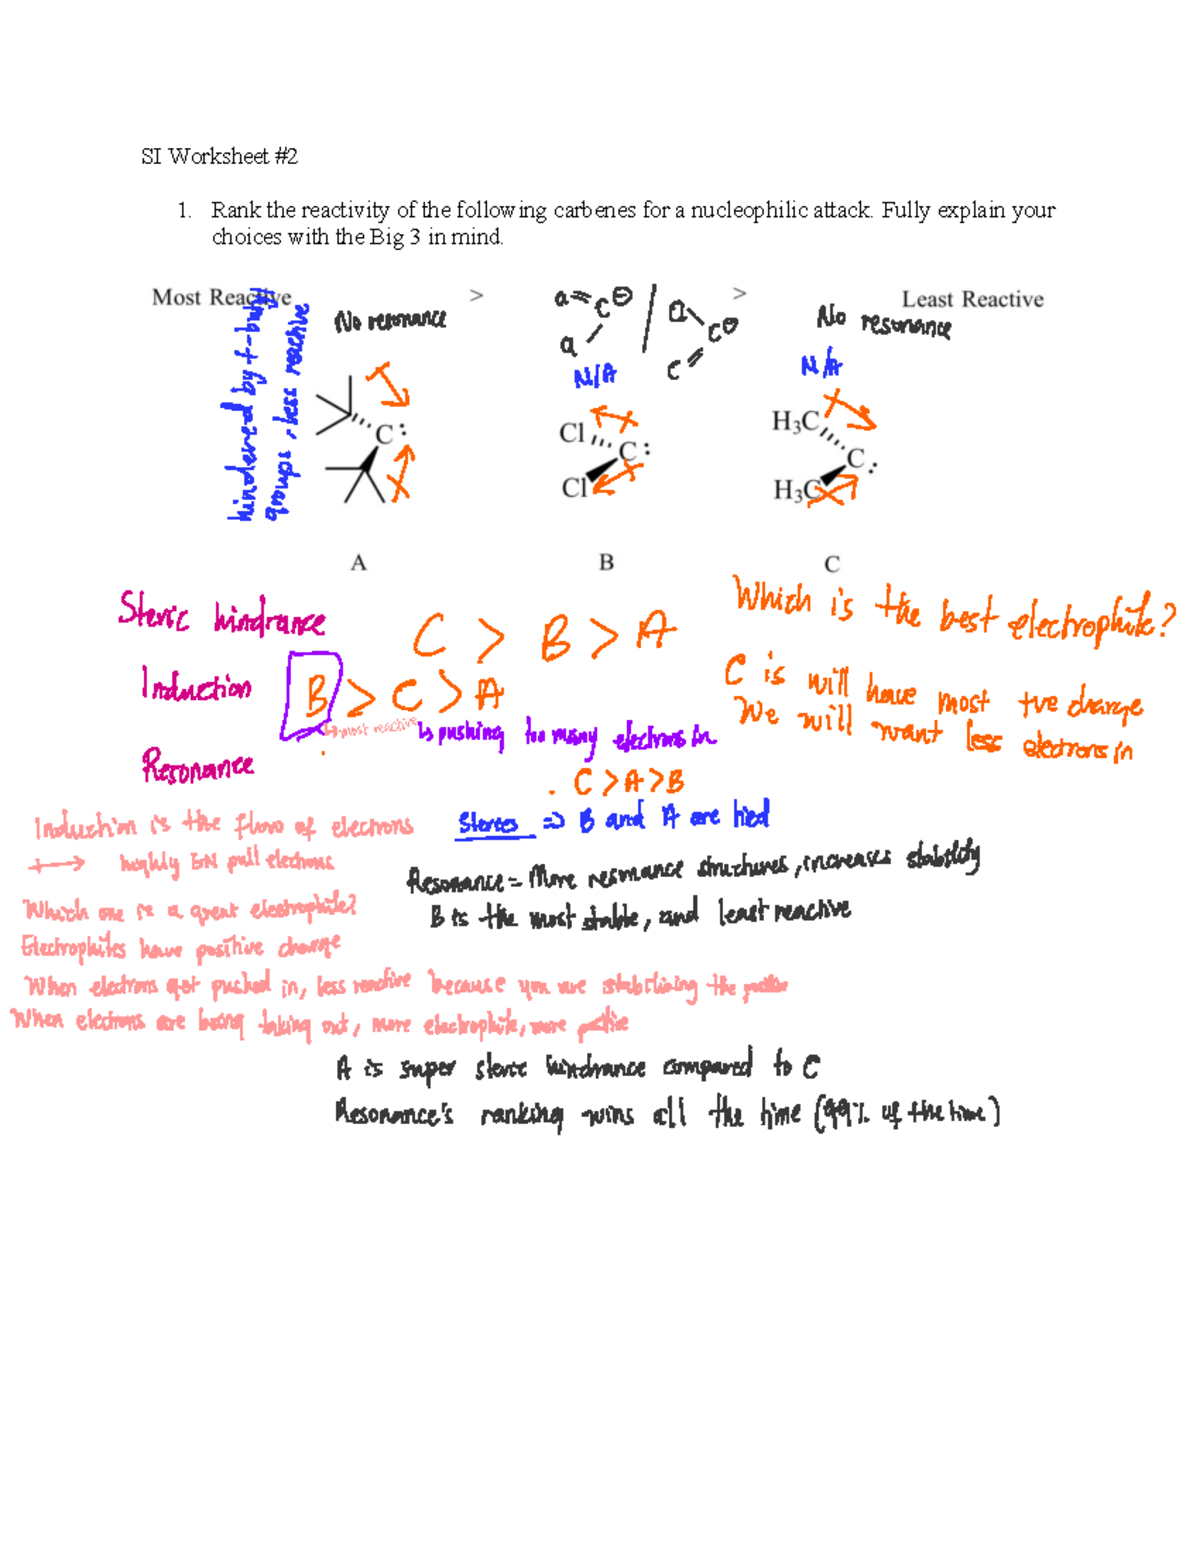 SI Worksheet #2
1. Rank the reactivity of the following carbenes for a nucleophilic attack. Fully explain your
choices with the Big 3 in mind.
Most Reactive > > Least Reactive
hindered by t-butyl
groups, less reactive
No resonance
N/A
No resonance
N/A
C:
Cl
C:
Cl
H3C
C:
H3C
A B C
Steric hindrance C > B > A
Induction B > C > A
most reactive
↳ pushing too many electrons in
Resonance
C > A > B
Which is the best electrophile?
C is will have most +ve charge
We will want less electrons in
Induction is the flow of electrons
highly EN pull electrons
Which one is a great electrophile?
Electrophiles have positive charge
When electrons get pushed in, less reactive because you are stabilizing the
When electrons are being taking out, more electrophile, more
Sterics => B and A are tied
Resonance = More resonance structures, increases stability
B is the most stable, and least reactive
A is super steric hindrance compared to C
Resonance's ranking wins all the time (99% of the time)